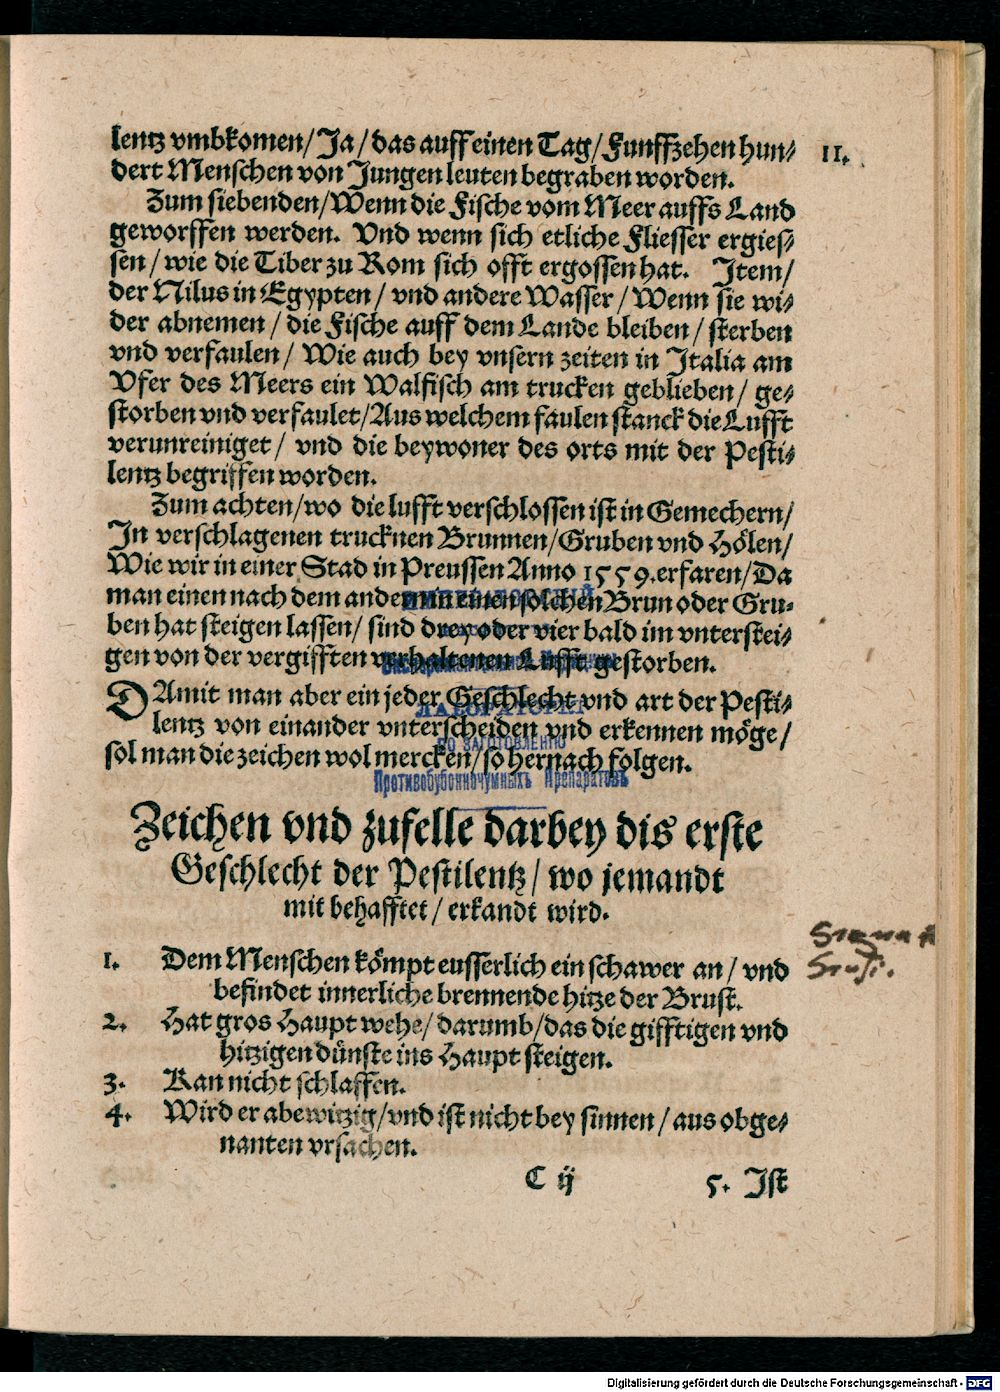 lentz vmbkomen/ Ja/ das auff einen Tag/ Funffzehen hun⸗
11.
dert Menschen von Jungen leuten begraben worden.
Zum siebenden/ Wenn die Fische vom Meer auffs Land
geworffen werden. Vnd wenn sich etliche Fliesser ergies⸗
sen/ wie die Tiber zu Rom sich offt ergossen hat. Item/
der Nilus in Egypten/ vnd andere Wasser/ Wenn sie wi⸗
der abnemen/ die Fische auff dem Lande bleiben/ sterben
vnd verfaulen/ Wie auch bey vnsern zeiten in Italia am
Vfer des Meers ein Walfisch am trucken geblieben/ ge⸗
storben vnd verfaulet/ Aus welchem faulen stanck die Lufft
verunreiniget/ vnd die beywoner des orts mit der Pesti⸗
lentz begriffen worden.
Zum achten/ wo die lufft verschlossen ist in Gemechern/
In verschlagenen trucknen Brunnen/ Gruben vnd Hölen/
Wie wir in einer Stad in Preussen Anno 1559. erfaren/ Da
man einen nach dem andern in einen solchen Brun oder Gru⸗
ben hat steigen lassen/ sind drey oder vier bald im vnterstei⸗
gen von der vergifften verhaltenen Lufft gestorben.
DAmit man aber ein jeder Geschlecht vnd art der Pesti⸗
lentz von einander vnterscheiden vnd erkennen möge/
sol man die zeichen wol mercken/ so hernach folgen.
ИМПЕРАТОРСКІЙ
ЛАБОРАТОРІЯ
ПО ЗАГОТОВЛЕНІЮ
Противобубонночумныхъ Препаратовъ
Zeichen vnd zufelle darbey dis erste
Geschlecht der Pestilentz/ wo jemandt
mit behafftet/ erkandt wird.
1. Dem Menschen kömpt eusserlich ein schawer an/ vnd
befindet innerliche brennende hitze der Brust.
2. Hat gros Haupt wehe/ darumb/ das die gifftigen vnd
hitzigen dünste ins Haupt steigen.
3. Kan nicht schlaffen.
4. Wird er abewitzig/ vnd ist nicht bey sinnen/ aus obge⸗
nanten vrsachen.
C ij
5. Ist
Digitalisierung gefördert durch die Deutsche Forschungsgemeinschaft - DFG